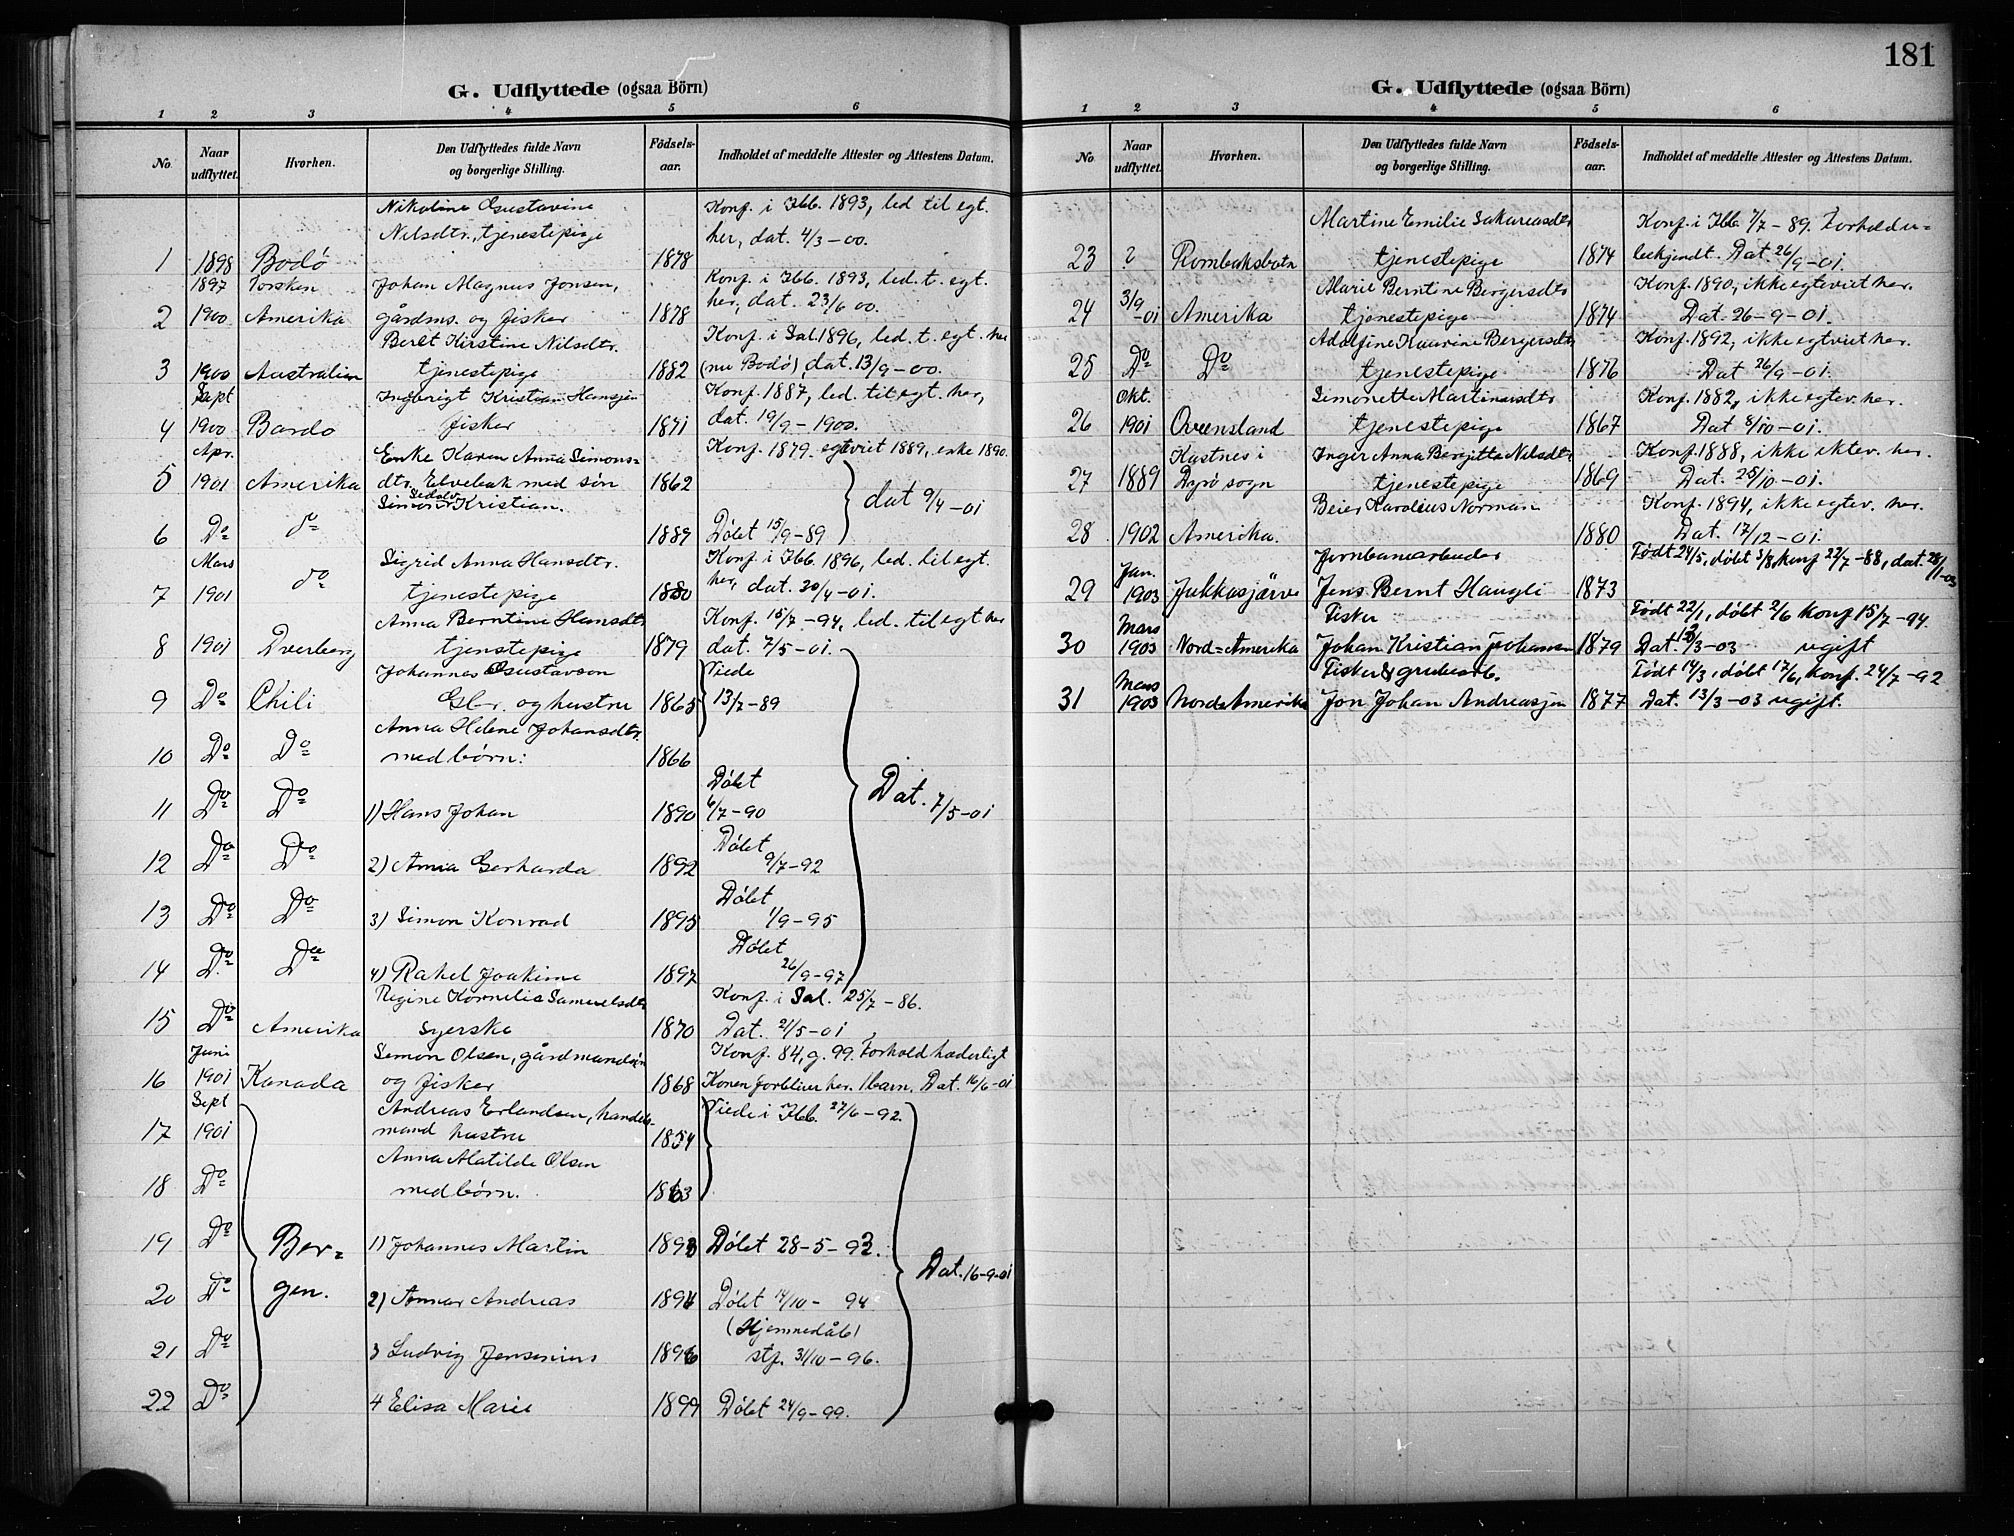 181
G. Udflyttede (ogsaa Börn)
1 2 3 4 5 6
No. Naar udflyttet. Hvorhen. Den Udflyttedes fulde Navn og borgerlige Stilling. Födsels-aar. Indholdet af meddelte Attester og Attestens Datum.
Nikoline Gustavine Konf. i Ibb. 1893, led. til egt.
Nilsdtr., tjenestepige her, dat. 4/3-00.
1 1898 Bodø 1878
1897 Torsken Johan Magnus Jonsen, Konf. i Ibb. 1893, led. t. egt.
2 1900 Amerika gårdms. og fisker 1878 her, dat. 23/6 00.
Beret Kirstine Nilsdtr. Konf. i Sal. 1896, led. t. egt. her
3 1900 Australien tjenestepige 1882 (nu Bodø), dat. 13/9-00.
Sept Ingbrigt Kristian Hansjen Konf. 1887, led. til egt. her,
4 1900 Bardo fisker 1871 dat. 19/9-1900.
Apr. Enke Karen Anna Simons= Konf. 1879. egteviet 1889, enke 1890.
5 1901 Amerika dtr. Elvebak med søn 1862
Simon Kristian. dat 9/4-01
6 Do do 1889 Døbt 15/9-89
Mars Sigrid Anna Hansdtr. Konf. i Ibb. 1896, led. til egt.
7 1901 do tjenestepige 1880 her, dat. 20/4-01.
Anna Berntine Hansdtr Konf. 15/7-94, led. til egt her
8 1901 Dverberg tjenstepige 1879 dat. 7/5-01.
Johannes Gustavson Viede
9 Do Chili Gbr. og hustru 1865 13/7-89
Anna Helene Johansdtr.
10 Do Do med børn: 1866
Døbt
11 Do Do 1) Hans Johan 1890 6/7-90 Dat. 7/5-01
Døbt
12 Do Do 2) Anna Gerharda 1892 9/7-92
Døbt
13 Do Do 3) Simon Konrad 1895 1/9-95
Døbt
14 Do Do 4) Rakel Joakime 1897 26/9-97
Regine Kornelia Samuelsdtr Konf. i Sal. 25/7-86.
15 Do Amerika syerske 1870 Dat. 21/5-01
Juni Simon Olsen, gårdmandsøn Konf. 84, g. 99. Forhold hæderligt
16 1901 Kanada og fisker 1868 Konen forbliver her. 1 barn. Dat. 16/6-01
Sept Andreas Erlandsen, handels- Viede i Ibb. 27/6-92.
17 1901 mand hustru 1854
Anna Matilde Olsen
18 Do med børn. 1863
19 Do Ber= 1) Johannes Martin 1893 Døbt 28-5-93.
Dat. 16-9-01
20 Do gen. 2) Annar Andreas 1894 Døbt 14/10-94
(Hjemmedåb)
21 Do 3 Ludvig Jensenius 1896 stf. 31/10-96.
22 Do 4 Elisa Marie 1899 Døbt 24/9-99.
G. Udflyttede (ogsaa Börn)
1 2 3 4 5 6
No. Naar udflyttet. Hvorhen. Den Udflyttedes fulde Navn og borgerlige Stilling. Födsels-aar. Indholdet af meddelte Attester og Attestens Datum.
Martine Emilie Sakariasdtr Konf. i Ibb. 7/7-89. Forholdu=
23 ? Rombaksbotn tjenestepige 1874 bekjendt. Dat. 26/9-01.
3/9 Marie Berntine Bergersdtr Konf. 1890, ikke egteviet her.
24 -01 Amerika tjenestepige 1874 Dat. 26-9-01.
Adolfine Kaurine Bergersdtr Konf. 1892, ikke egteviet her.
25 Do Do tjenestepige 1876 Dat 26/9-01.
Okt. Simonette Martinusdtr Konf. 1882, ikke egtev. her.
26 1901 Qveensland tjenestepige 1867 Dat 8/10-01.
Kastnes i Inger Anna Bergitte Nilsdtr Konf. 1888, ikke ektev. her.
27 1889 Dyrø sogn tjenestepige 1869 Dat. 28/10-01.
Beier Karolius Norman Konf. 1894, ikke egtev. her.
28 1902 Amerika. 1880 Dat. 17/12-01.
Jernbanearbeider Født 24/5, døbt 3/8, konf 22/7-88, dat. 28/1-03
29 Jan. 1903 Jukkasjärve Jens Bernt Haugli 1873
Mars Fisker Født 22/1, døbt 2/6 Konf 15/7-94.
30 1903 Nord-Amerika Johan Kristian Johansen 1879 Dat. 13/3-03 ugift
Mars Fisker & grubearb. Født 14/3, døbt 17/6, konf. 24/7-92
31 1903 Nord Amerika Jon Johan Andreasjen 1877 Dat. 13/3-03 ugift.